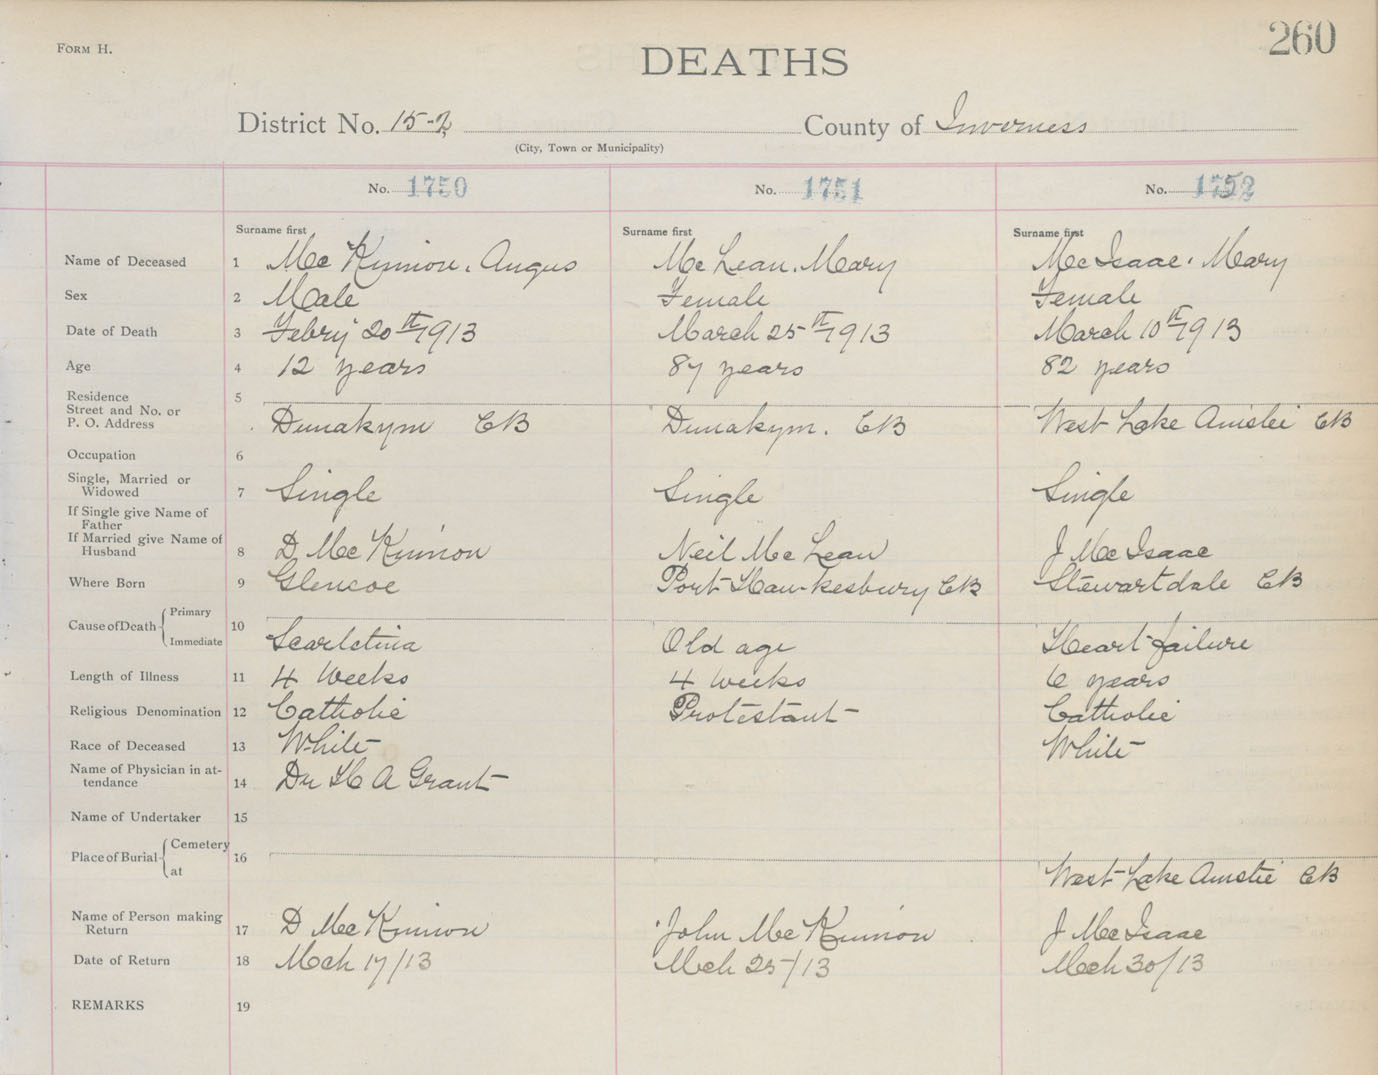 FORM H.
260
DEATHS
District No. 15-2 County of Inverness
(City, Town or Municipality)
No. 1750 No. 1751 No. 1752
Surname first Surname first Surname first
Name of Deceased 1 McKinnon, Angus McLean, Mary McIsaac, Mary
Sex 2 Male Female Female
Date of Death 3 Febry 20th 1913 March 25th 1913 March 10th 1913
Age 4 12 years 87 years 82 years
Residence 5
Street and No. or
P. O. Address Dunakym CB Dunakym. CB West Lake Ainslei CB
Occupation 6
Single, Married or
Widowed 7 Single Single Single
If Single give Name of
Father
If Married give Name of
Husband 8 D McKinnon Neil McLean J McIsaac
Where Born 9 Glencoe Port Hawkesbury CB Stewartdale CB
Cause of Death Primary
Immediate 10 Scarletina Old age Heart failure
Length of Illness 11 4 Weeks 4 weeks 6 years
Religious Denomination 12 Catholic Protestant Catholic
Race of Deceased 13 White White
Name of Physician in at-
tendance 14 Dr H A Grant
Name of Undertaker 15
Place of Burial Cemetery
at 16 West Lake Ainslie CB
Name of Person making
Return 17 D McKinnon John McKinnon J McIsaac
Date of Return 18 Mch 17/13 Mch 25/13 Mch 30/13
REMARKS 19